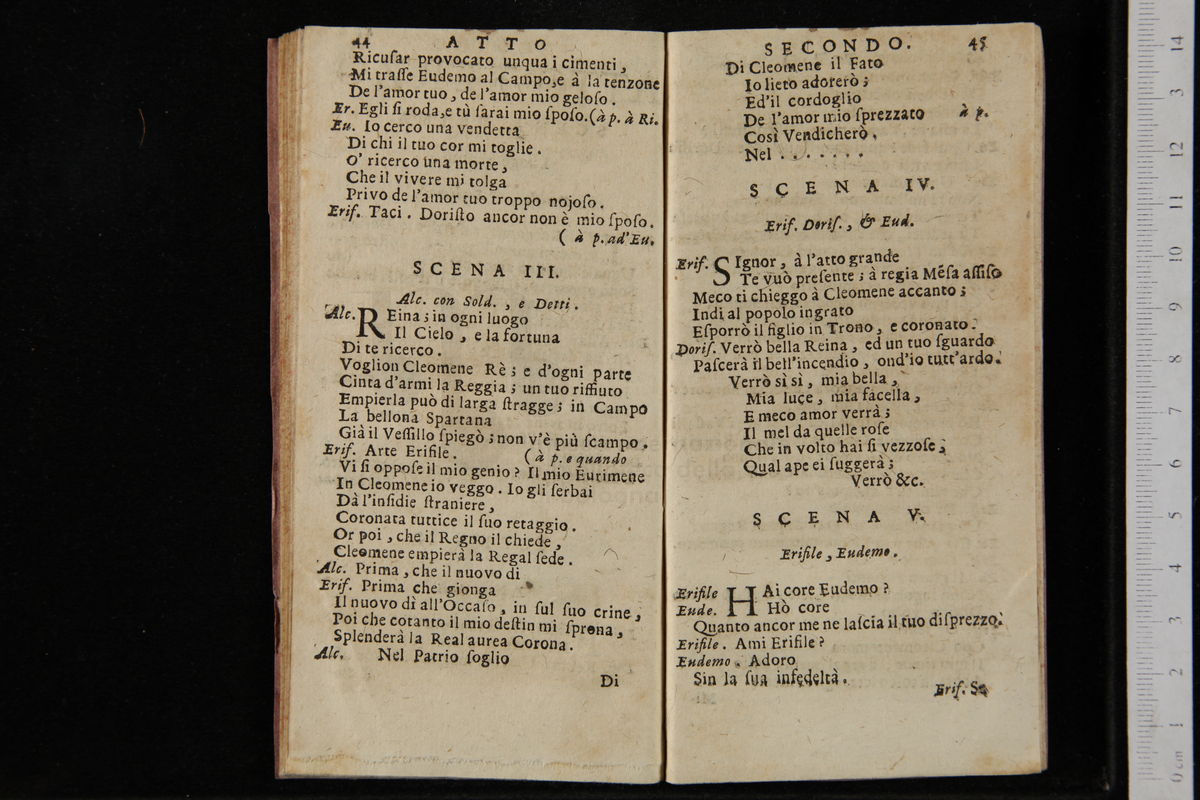 44 ATTO
Ricuſar provocato unqua i cimenti,
Mi traſſe Eudemo al Campo, e à la tenzone
De l'amor tuo, de l'amor mio geloſo.
Er. Egli ſi roda, e tù ſarai mio ſpoſo. (à p. à Ri.
Eu. Io cerco una vendetta
Di chi il tuo cor mi toglie.
O' ricerco una morte,
Che il vivere mi tolga
Privo de l'amor tuo troppo nojoſo.
Eriſ. Taci. Doriſto ancor non è mio ſpoſo.
( à p. ad'Eu.
SCENA III.
Alc. con Sold., e Detti.
Alc. REina; in ogni luogo
Il Cielo, e la fortuna
Di te ricerco.
Voglion Cleomene Rè; e d'ogni parte
Cinta d'armi la Reggia; un tuo riffiuto
Empierla può di larga ſtragge; in Campo
La bellona Spartana
Già il Veſſillo ſpiegò; non v'è più ſcampo.
Eriſ. Arte Erifile. (à p. e quando
Vi ſi oppoſe il mio genio? Il mio Eurimene
In Cleomene io veggo. Io gli ſerbai
Dà l'inſidie ſtraniere,
Coronata tuttice il ſuo retaggio.
Or poi, che il Regno il chiede,
Cleomene empierà la Regal ſede.
Alc. Prima, che il nuovo di
Eriſ. Prima che gionga
Il nuovo dì all'Occaſo, in ſul ſuo crine,
Poi che cotanto il mio deſtin mi ſprona,
Splenderà la Real aurea Corona.
Alc. Nel Patrio ſoglio
Di
SECONDO. 45
Di Cleomene il Fato
Io lieto adorerò;
Ed'il cordoglio
De l'amor mio ſprezzato à p.
Così Vendicherò.
Nel . . . . . . .
SCENA IV.
Eriſ. Doriſ., & Eud.
Eriſ. SIgnor, à l'atto grande
Te vuò preſente; à regia Mẽſa aſſiſo
Meco ti chieggo à Cleomene accanto;
Indi al popolo ingrato
Eſporrò il figlio in Trono, e coronato.
Doriſ. Verrò bella Reina, ed un tuo ſguardo
Paſcerà il bell'incendio, ond'io tutt'ardo.
Verrò sì sì, mia bella,
Mia luce, mia facella,
E meco amor verrà;
Il mel da quelle roſe
Che in volto hai ſi vezzoſe,
Qual ape ei ſuggerà;
Verrò &c.
SCENA V.
Erifile, Eudemo.
Erifile HAi core Eudemo?
Eude. Hò core
Quanto ancor me ne laſcia il tuo diſprezzo.
Erifile. Ami Erifile?
Eudemo. Adoro
Sin la ſua infedeltà.
Eriſ. Se